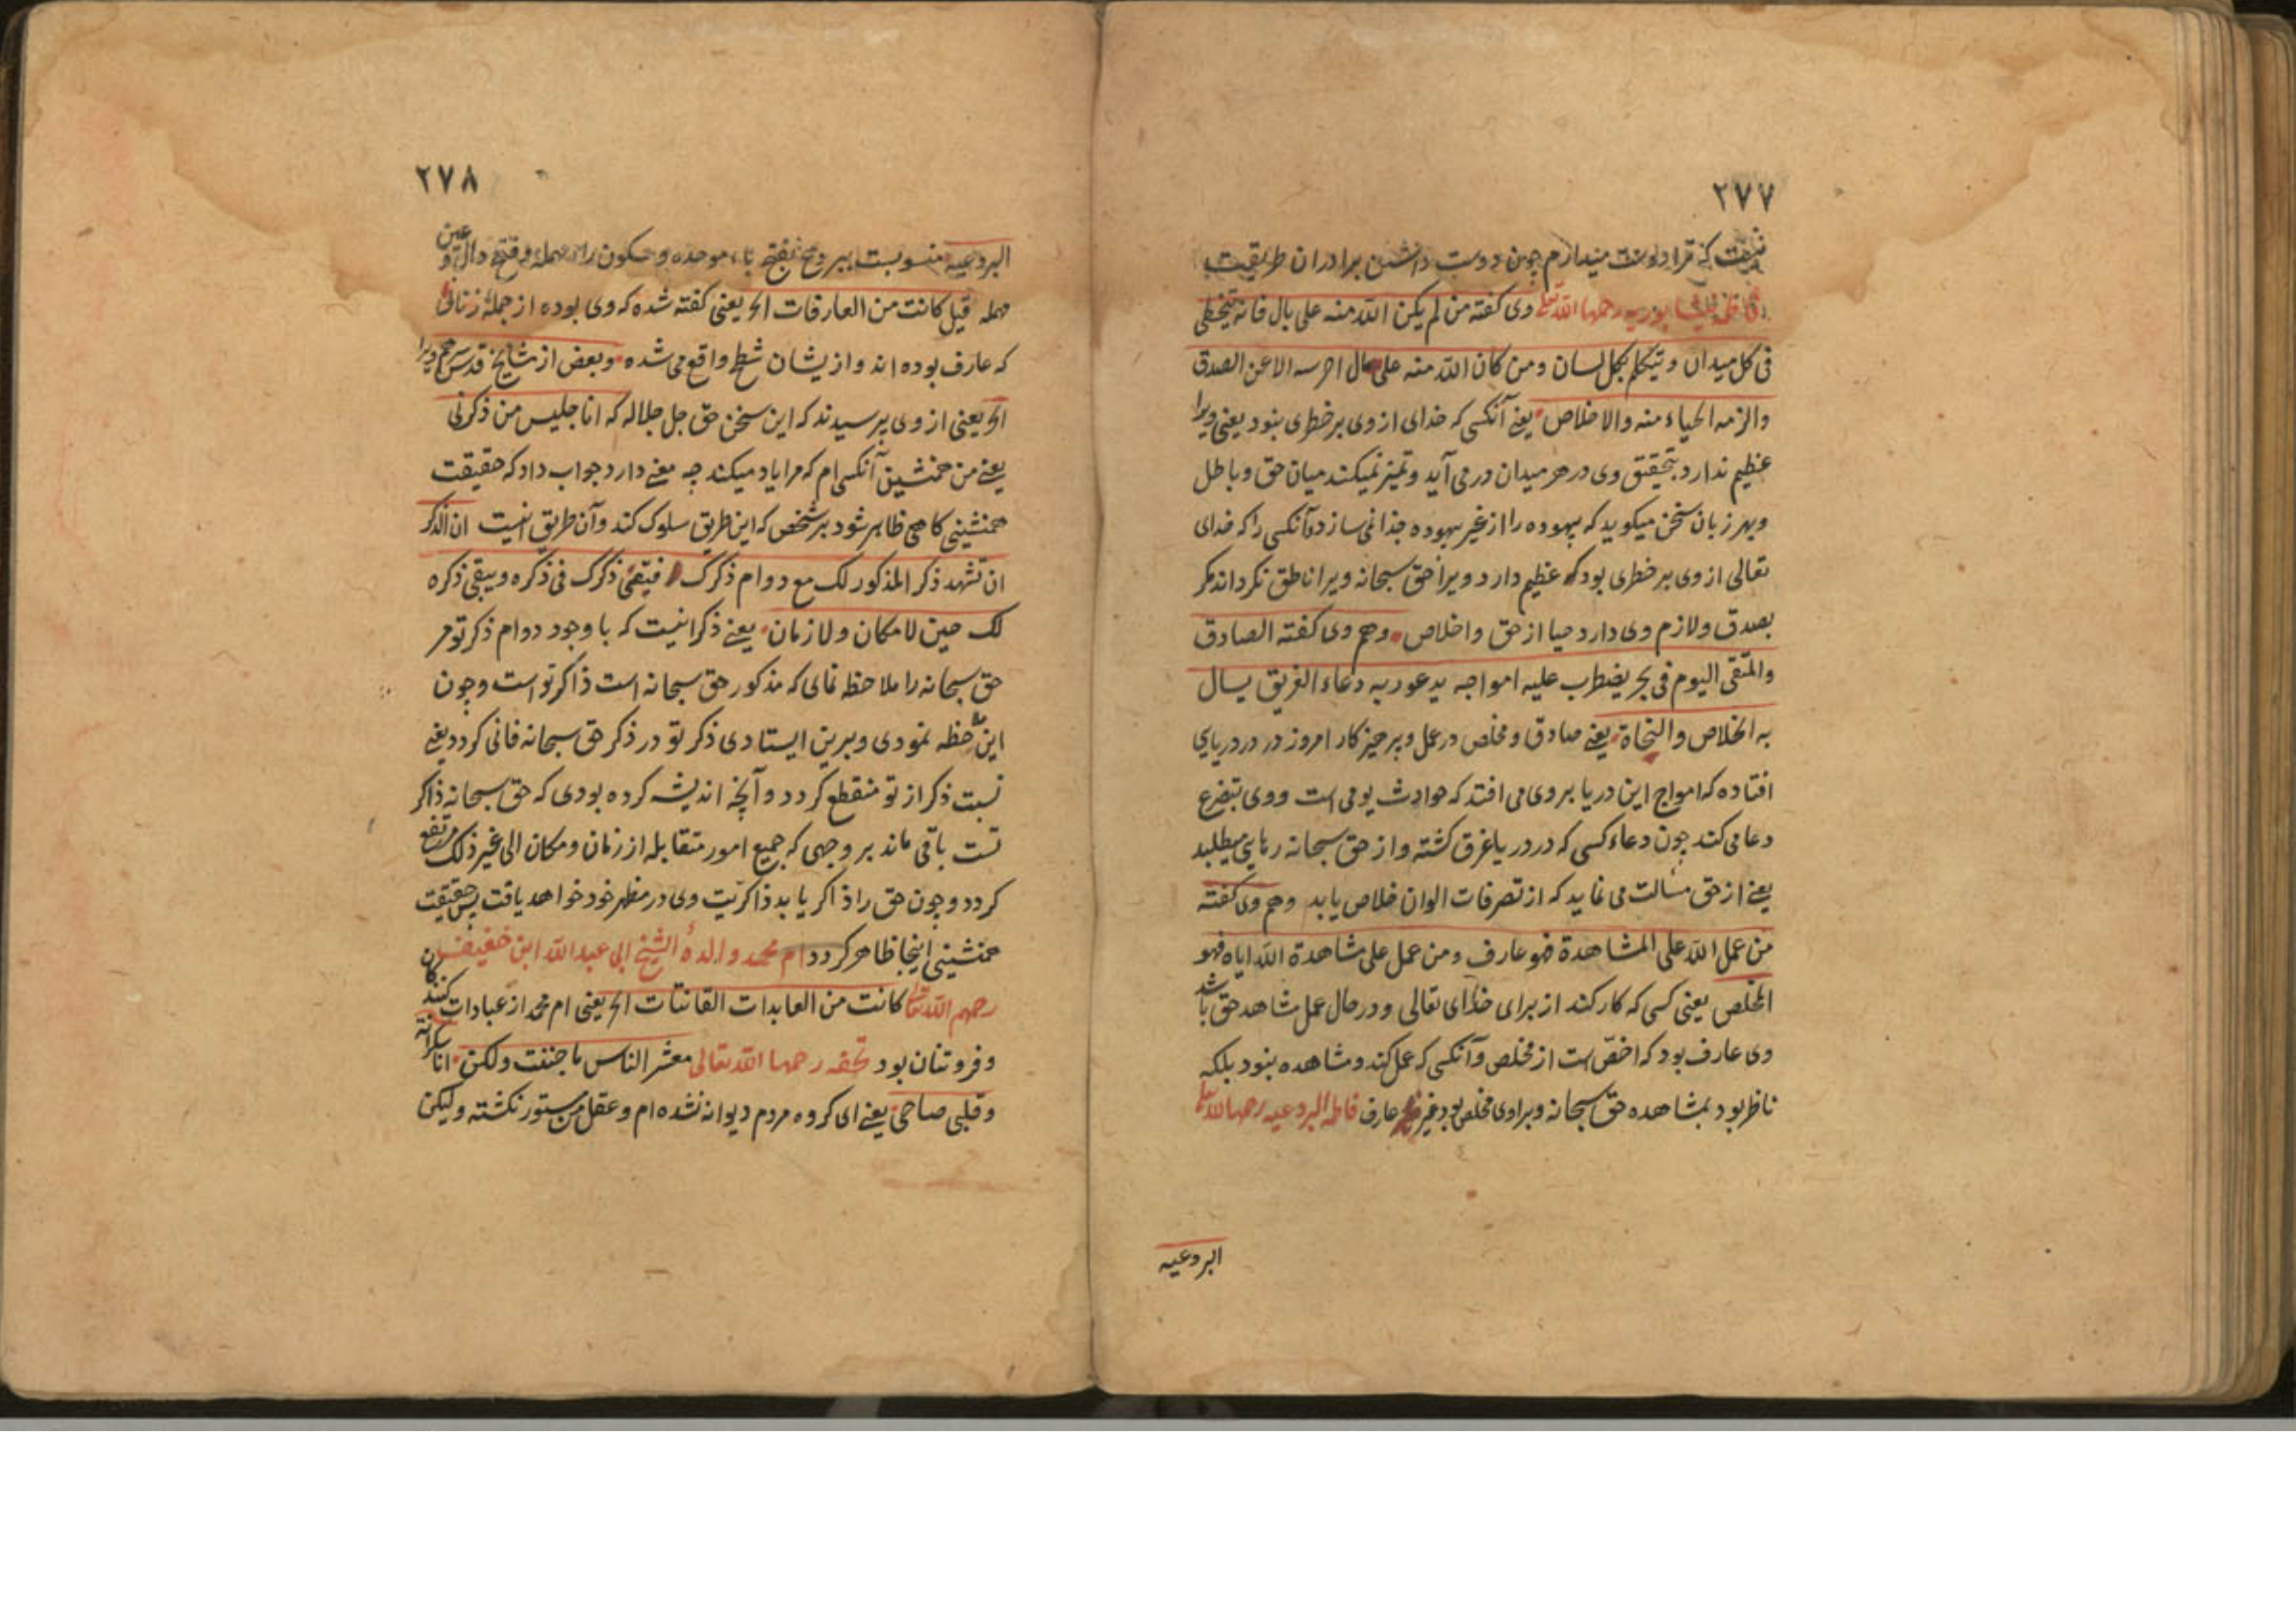 ۲۷۷
که ترا دوست میدارم چون دوست داشتن برادران طریقت
فاطمه نیشابوریه رحمها الله تع وی گفته من لم یکن الله منه علی بال فانه یتخطی
فی کل میدان و یتکلم بکل لسان و من کان الله منه علی بال اخرسه الا عن الصدق
والزمه الحیاء منه والاخلاص یعنی آنکسی که خدای از وی بر خطری نبود یعنی ویرا
عظیم ندارد بتحقیق وی در هر میدان در می آید و تمیز نمیکند میان حق و باطل
و بهر زبان سخن میکوید که بیهوده را از غیر بیهوده جدا نمی سازد و آنکسی را که خدای
تعالی از وی بر خطری بود که عظیم دارد ویرا حق سبحانه ویرا ناطق نکرداند مکر
بصدق و لازم وی دارد حیا از حق و اخلاص و هم وی کفته الصادق
والمتقی الیوم فی بحر یضطرب علیه امواجه یدعو ربه دعاء الغریق یسال
به الخلاص والنجاة یعنی صادق و مخلص در عمل و پرهیزکار امروز در دریای
افتاده که امواج این دریا بر وی می افتد که حوادث یومی است و وی بتضرع
دعا می کند چون دعاء کسی که در دریا غرق کشته و از حق سبحانه رهایی میطلبد
یعنی از حق مسألت می نماید که از تصرفات الوان خلاص یابد و هم وی کفته
من عمل الله علی المشاهدة فهو عارف و من عمل علی مشاهدة الله ایاه فهو
المخلص یعنی کسی که کار کند از برای خدای تعالی و در حال عمل مشاهد حق باشد
وی عارف بود که اخص است از مخلص و آنکسی که عمل کند و مشاهده نبود بلکه
ناظر بود بمشاهده حق سبحانه و برا وی مخلص بود غیر عارف فاطمه البردعیه رحمها الله تع
البردعیه
۲۷۸
البردعیه منسوبست ببردع بفتح باء موحده و سکون راء مهمله و فتح دال و عین
مهمله قیل کانت من العارفات الخ یعنی کفته شده که وی بوده از جملهٔ زنانی
که عارف بوده اند و از یشان شطح واقع می شده و بعض از مشایخ قدس سرهم ویرا
الخ یعنی از وی پرسیدند که این سخن حق جل جلاله که انا جلیس من ذکرنی
یعنی من همنشین آنکس ام که مرا یاد میکند چه معنی دارد جواب داد که حقیقت
همنشینی کاهی ظاهر شود بر شخص که این طریق سلوک کند و آن طریق اینست ان الذکر
ان تشهد ذکر المذکور لک مع دوام ذکرک فیفنی ذکرک فی ذکره و یبقی ذکره
لک حین لا مکان و لا زمان یعنی ذکر اینست که با وجود دوام ذکر تو مر
حق سبحانه را ملاحظه نمای که مذکور حق سبحانه است ذاکر تو است و چون
این ملاحظه نمودی و برین ایستادی ذکر تو در ذکر حق سبحانه فانی کردد یعنی
نسبت ذکر از تو منقطع کردد و آنچه اندیشه کرده بودی که حق سبحانه ذاکر
تست باقی ماند بر وجهی که جمیع امور متقابله از زمان و مکان الی غیر ذلک مرتفع
کردد و چون حق را ذاکر یابد ذاکریت وی در مظهر خود خواهد یافت پس حقیقت
همنشینی اینجا ظاهر کردد ام محمد والدهٔ الشیخ ابی عبد الله ابن خفیف
رحمهم الله تعا کانت من العابدات القانتات الخ یعنی ام محمد از عبادات کنندکان
و فروتنان بود تحفه رحمها الله تعالی معشر الناس ما جننت ولکن انا سکرانة
و قلبی صاحی یعنی ای کروه مردم دیوانه نشده ام و عقل من مستور نکشته و لیکن